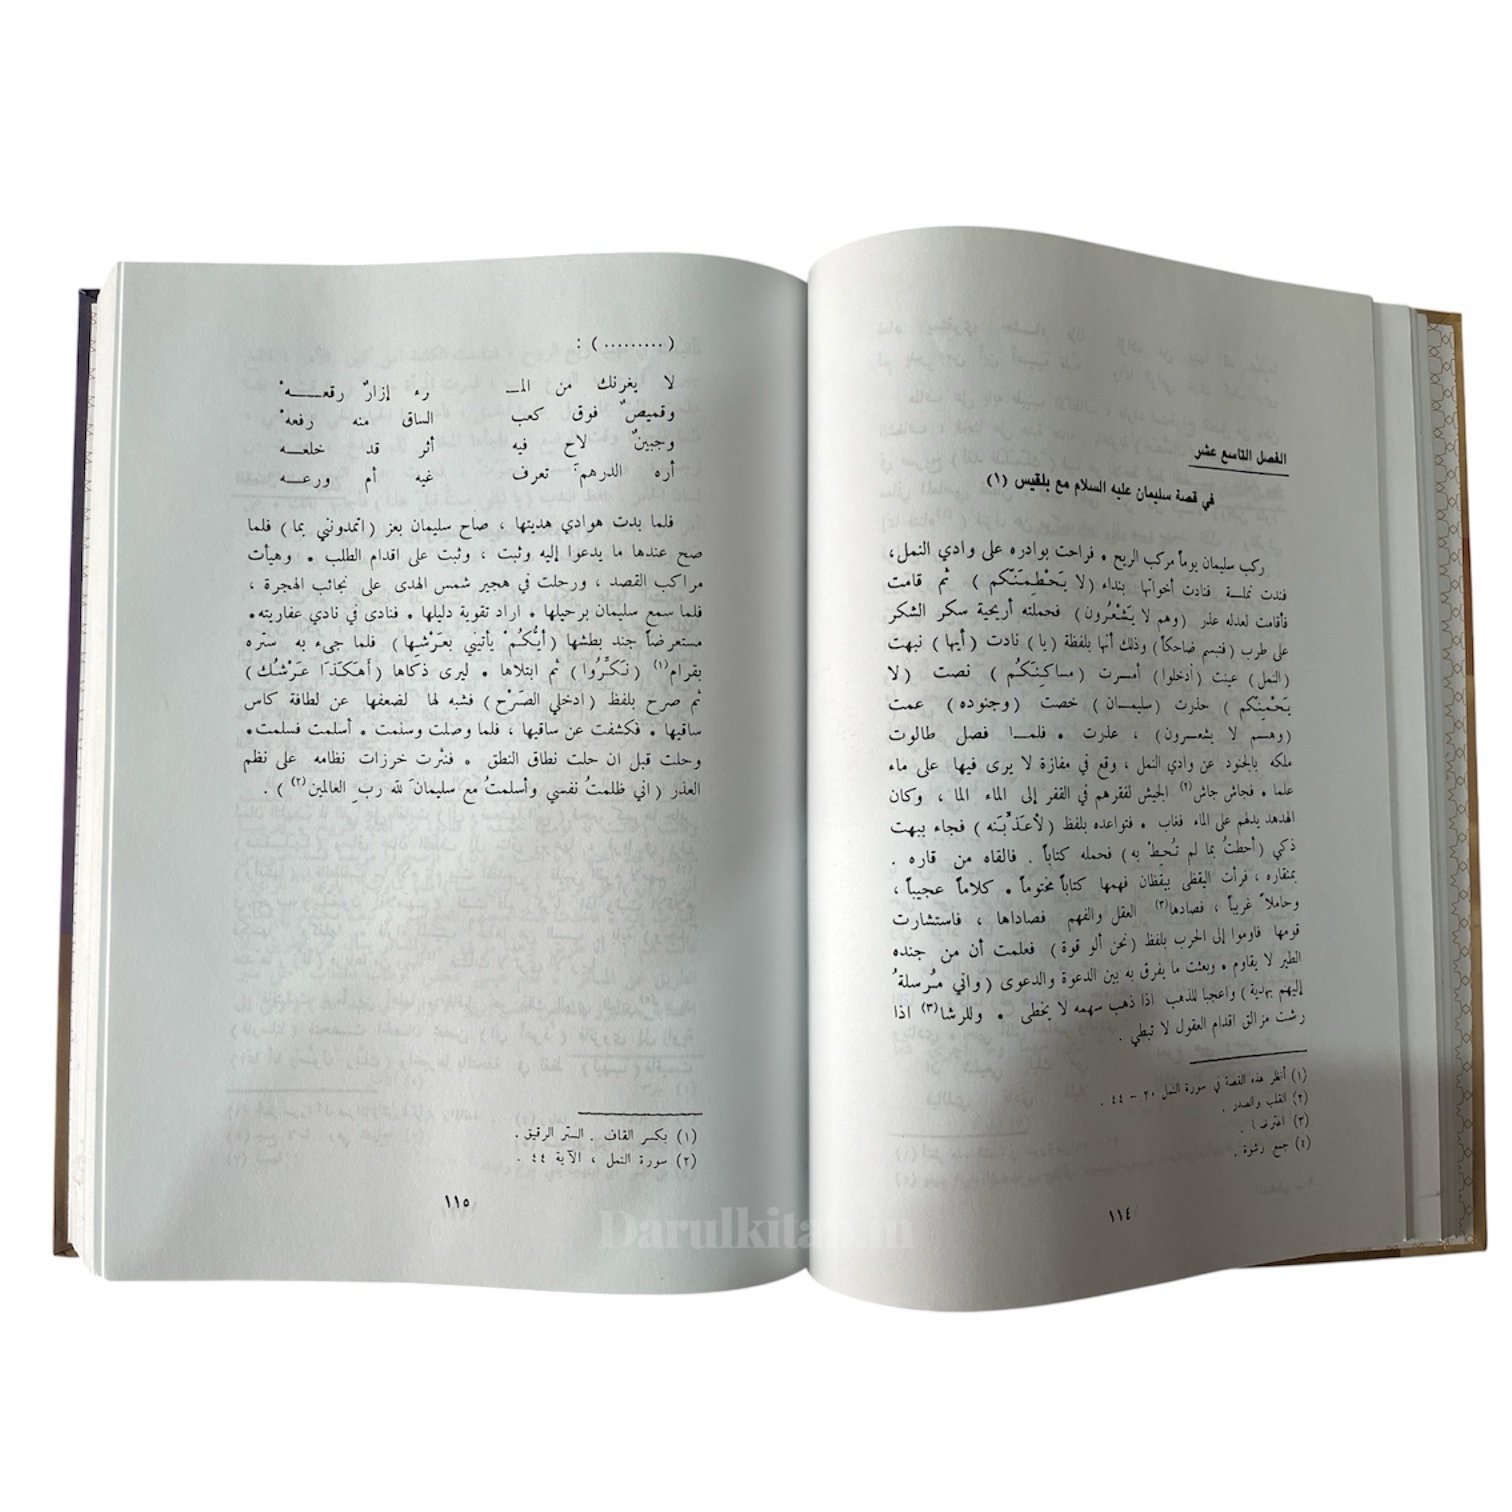 الفصل التاسع عشر
في قصة سليمان عليه السلام مع بلقيس (١)
ركب سليمان يوماً مركب الريح . فراحت بوادره على وادي النمل،
فندت نملة فنادت أخواتها بنداء (لا يَحْطِمَنَّكم) ثم قامت
فأقامت لعدله عذر (وهم لا يَشْعُرون) فحملته أريحية سكر الشكر
على طرب (فتبسم ضاحكاً) وذلك أنها بلفظة (يا) نادت (أيها) نبهت
(النمل) عينت (أدخلوا) أمـرت (مساكِنَكُم) نصت (لا
يَحْمِنّكم) حذرت (سليمـان) خصت (وجنوده) عمت
(وهـم لا يشعـرون) ، عذرت . فلمـا فصل طالوت
ملكه بالجنود عن وادي النمل ، وقع في مفازة لا يرى فيها على ماء
علما . فجاش جاش(٢) الجيش لفقرهم في القفر إلى الماء الما ، وكان
الهدهد يدلهم على الماء فغاب . فتواعده بلفظ (لأعذّبَنه) فجاء ببهت
ذكي (أحطتُ بما لم تُحِطْ به) فحمله كتاباً . فالقاه من قاره .
بمنقاره ، فرأت اليقظى بيقظان فهمها كتاباً مختوماً . كلاماً عجيباً ،
وحاملاً غريباً ، فصادها(٣) العقل والفهم فصاداها ، فاستشارت
قومها فاوموا إلى الحرب بلفظ (نحن ألو قوة) فعلمت أن من جنده
الطير لا يقاوم . وبعثت ما يفرق به بين الدعوة والدعوى (واني مُرسلةُ
إليهم بهدية) واعجبا للذهب اذا ذهب سهمه لا يخطى . وللرشا(٣) اذا
رشت مزالق اقدام العقول لا تبطي .
(١) أنظر هذه القصة في سورة النمل ٢٠ – ٤٤ .
(٢) القلب والصدر .
(٣) اعترفا .
(٤) جمع رشوة .
١١٤
(.........) :
لا يغرنك من المـ رء إزارٌ رقعـهْ
وقميصٌ فوق كعب الساق منه رفعهْ
وجبينٌ لاح فيه أثر قد خلعـه
أره الدرهمَ تعرف غيه أم ورعـه
فلما بدت هوادي هديتها ، صاح سليمان بعز (اتمدونني بما) فلما
صح عندها ما يدعوا إليه وثبت ، وثبت على اقدام الطلب . وهيأت
مراكب القصد ، ورحلت في هجير شمس الهدى على نجائب الهجرة ،
فلما سمع سليمان برحيلها . اراد تقوية دليلها . فنادى في نادي عفاريته .
مستعرضاً جند بطشها (أَيُّكُمْ يأتيني بعَرْشِها) فلما جيء به ستره
بقرام(١) (نَكِّرُوا) ثم ابتلاها . ليرى ذكاها (أهَكَذَا عَرْشُك)
ثم صرح بلفظ (ادخلي الصَرْح) فشبه لها لضعفها عن لطافة كاس
ساقيها . فكشفت عن ساقيها ، فلما وصلت وسنمت . أسلمت فسلمت .
وحلت قبل ان حلت نطاق النطق . فنثرت خرزات نظامه على نظم
العذر (اني ظلمتُ نفسي وأسلمتُ مع سليمانَ لله ربِ العالمين(٢)) .
(١) بكسر القاف . الستر الرقيق .
(٢) سورة النمل ، الآية ٤٤ .
١١٥
Darulkitab.in